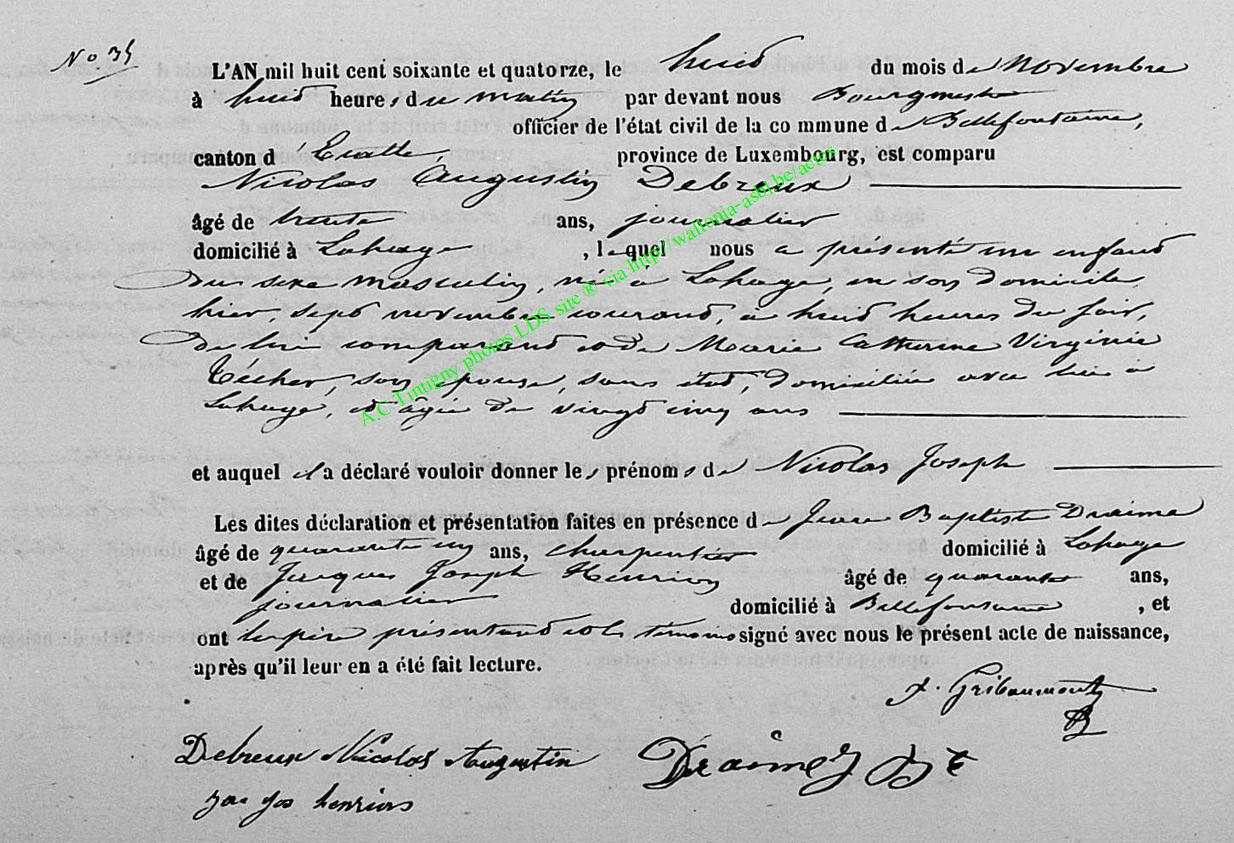 No. 35
L'AN mil huit cent soixante et quatorze, le huit du mois de Novembre
à huit heures du matin par devant nous Bourgmestre
officier de l'état civil de la commune de Bellefontaine,
canton d'Etalle, province de Luxembourg, est comparu
Nicolas Augustin Debreux
âgé de trente ans, journalier
domicilié à Lahage, lequel nous a présenté un enfant
du sexe masculin, né à Lahage, en son domicile
hier, sept novembre courant, à huit heures du soir,
de lui comparant et de Marie Catherine Virginie
Técher, son épouse, sans état, domiciliée avec lui à
Lahage, et âgée de vingt cinq ans
et auquel il a déclaré vouloir donner les prénoms de Nicolas Joseph
Les dites déclaration et présentation faites en présence de Jean Baptiste Draime
âgé de quarante un ans, charpentier domicilié à Lahage
et de Jacques Joseph Henrion âgé de quarante ans,
journalier domicilié à Bellefontaine, et
ont le père présentant et les témoins signé avec nous le présent acte de naissance,
après qu'il leur en a été fait lecture.
Gribaumont
Debreux Nicolas Augustin Draime J Bte
jac jos henrion
A.C Tintigny photos LDS site @ via http://wallonia-asbl.be/actes